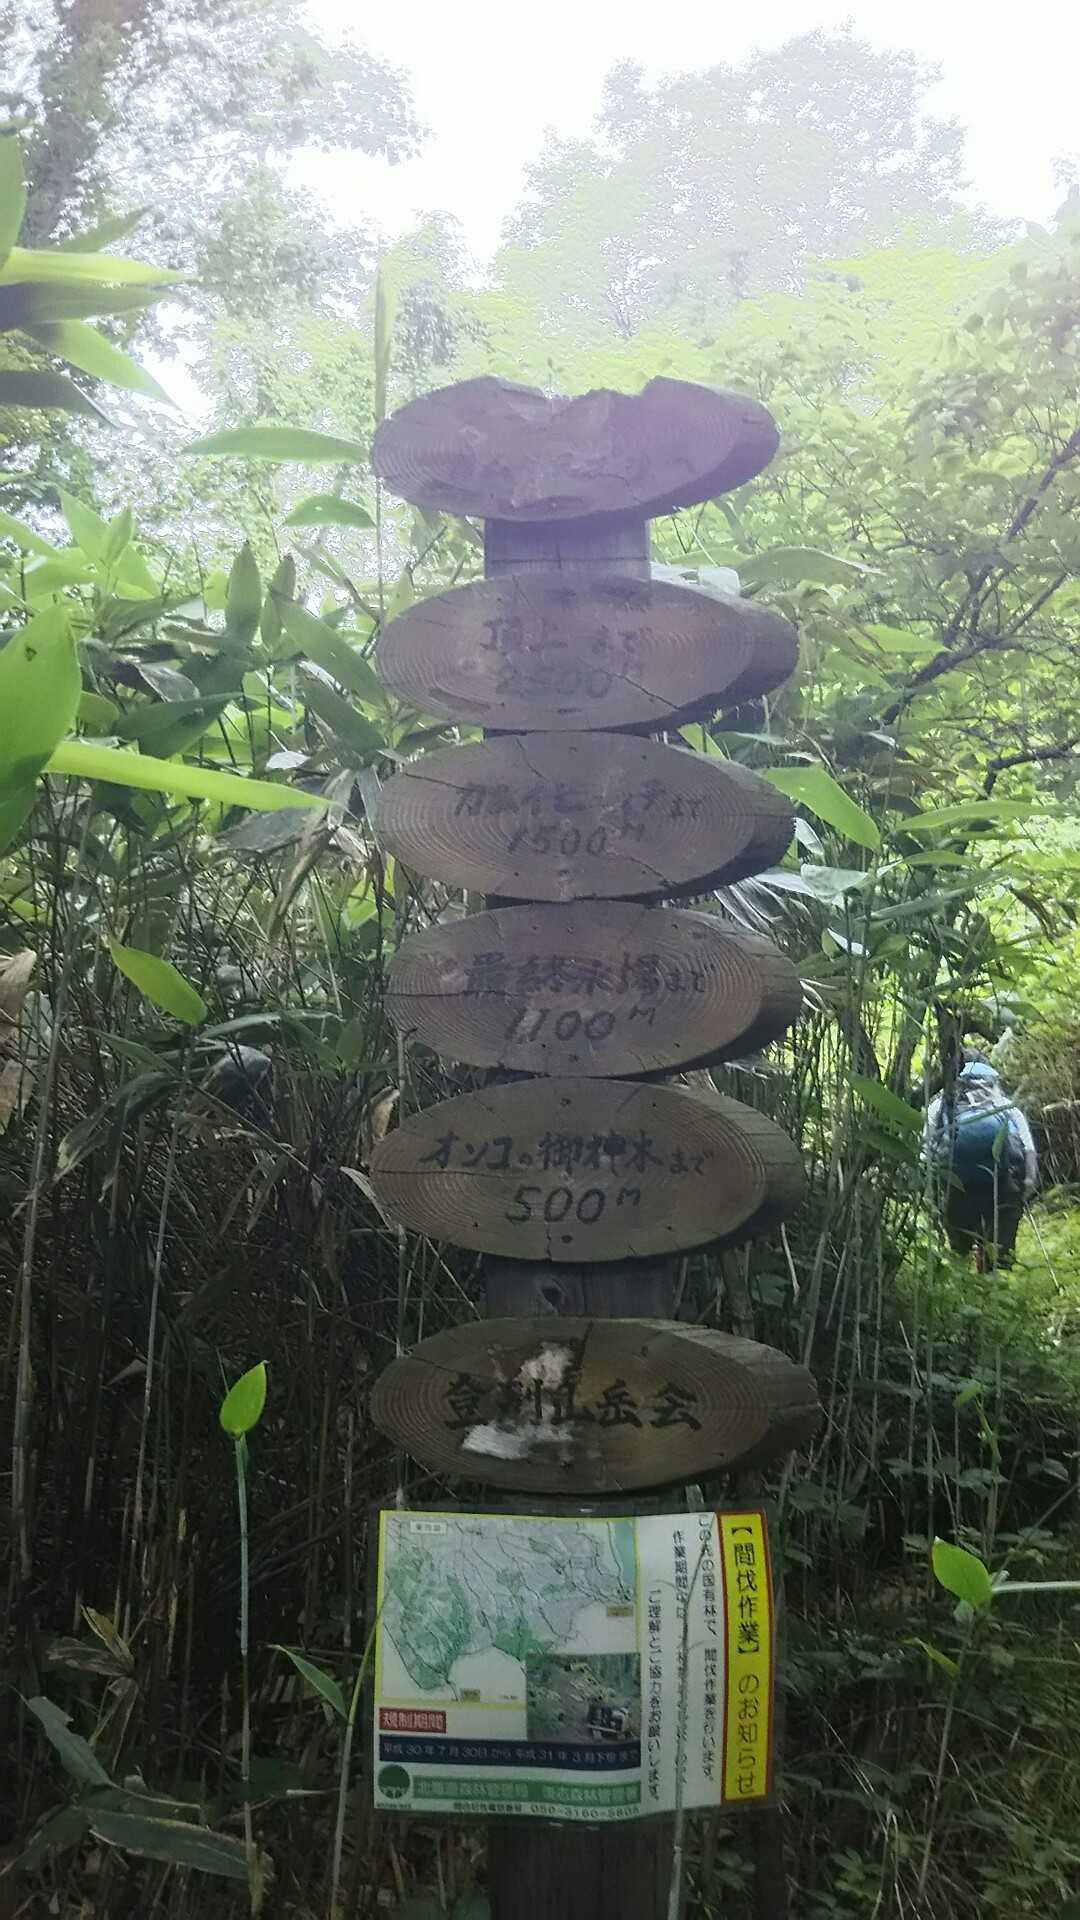 頂上まで
カムイビーチまで
1500M
最終水場まで
1100M
オンコの御神木まで
500M
山岳会
【間伐作業】のお知らせ
この先の国有林で、間伐作業を行います。
作業期間中は
ご理解とご協力をお願いします。
平成30年7月30日から平成31年3月下旬まで
北海道森林管理局 後志森林管理署
050-3160-5805